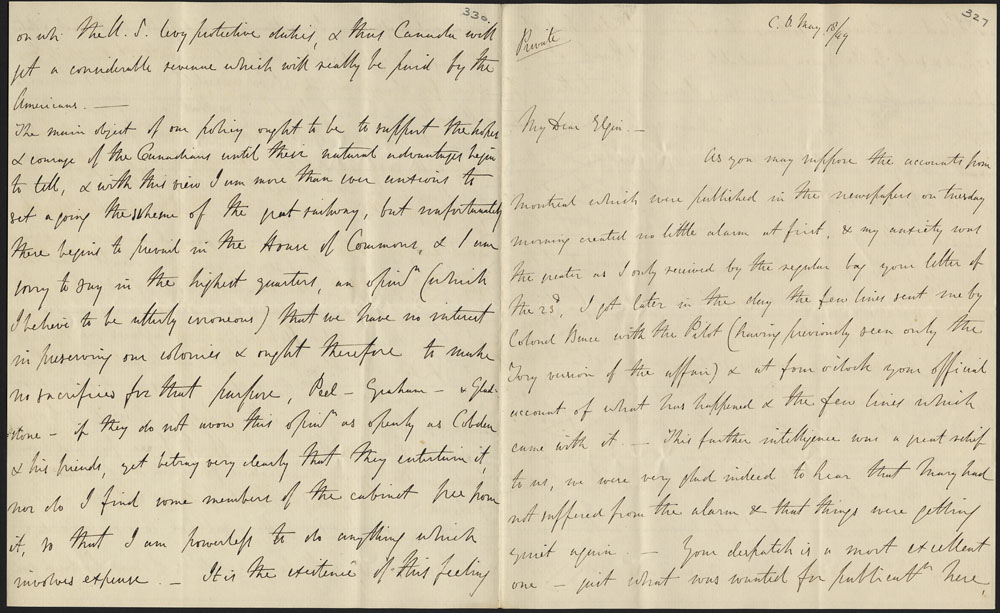 330.
on wh: the U. S. levy protective duties, & thus Canada will
get a considerable revenue which will really be paid by the
Americans. —
The main object of our policy ought to be to support the hopes
& courage of the Canadians until their natural advantages begin
to tell, & with this view I am more than ever anxious to
set a going the scheme of the great railway, but unfortunately
there begins to prevail in the House of Commons, & I am
sorry to say in the highest quarters, an opin:n (which
I believe to be utterly erroneous) that we have no interest
in preserving our colonies & ought therefore to make
no sacrifices for that purpose, Peel – Graham – & Glad-
stone – if they do not avow this opin:n as openly as Cobden
& his friends, yet betray very clearly that they entertain it,
nor do I find some members of the cabinet free from
it, so that I am powerless to do anything which
involves expense. – It is the existence of this feeling
327
C. O. May 18/49
Private
My Dear Elgin. –
As you may suppose the accounts from
Montreal which were published in the newspapers on tuesday
morning created no little alarm at first, & my anxiety was
the greater as I only received by the regular bag your letter of
the 23d, I got later in the day the few lines sent me by
Colonel Bruce with the Pilot (having previously seen only the
Tory version of the affair) & at four o'clock your official
account of what has happened & the few lines which
came with it. – This further intelligence was a great relief
to us, we were very glad indeed to hear that Mary had
not suffered from the alarm & that things were getting
quiet again. – Your despatch is a most excellent
one – just what was wanted for publicatn here,